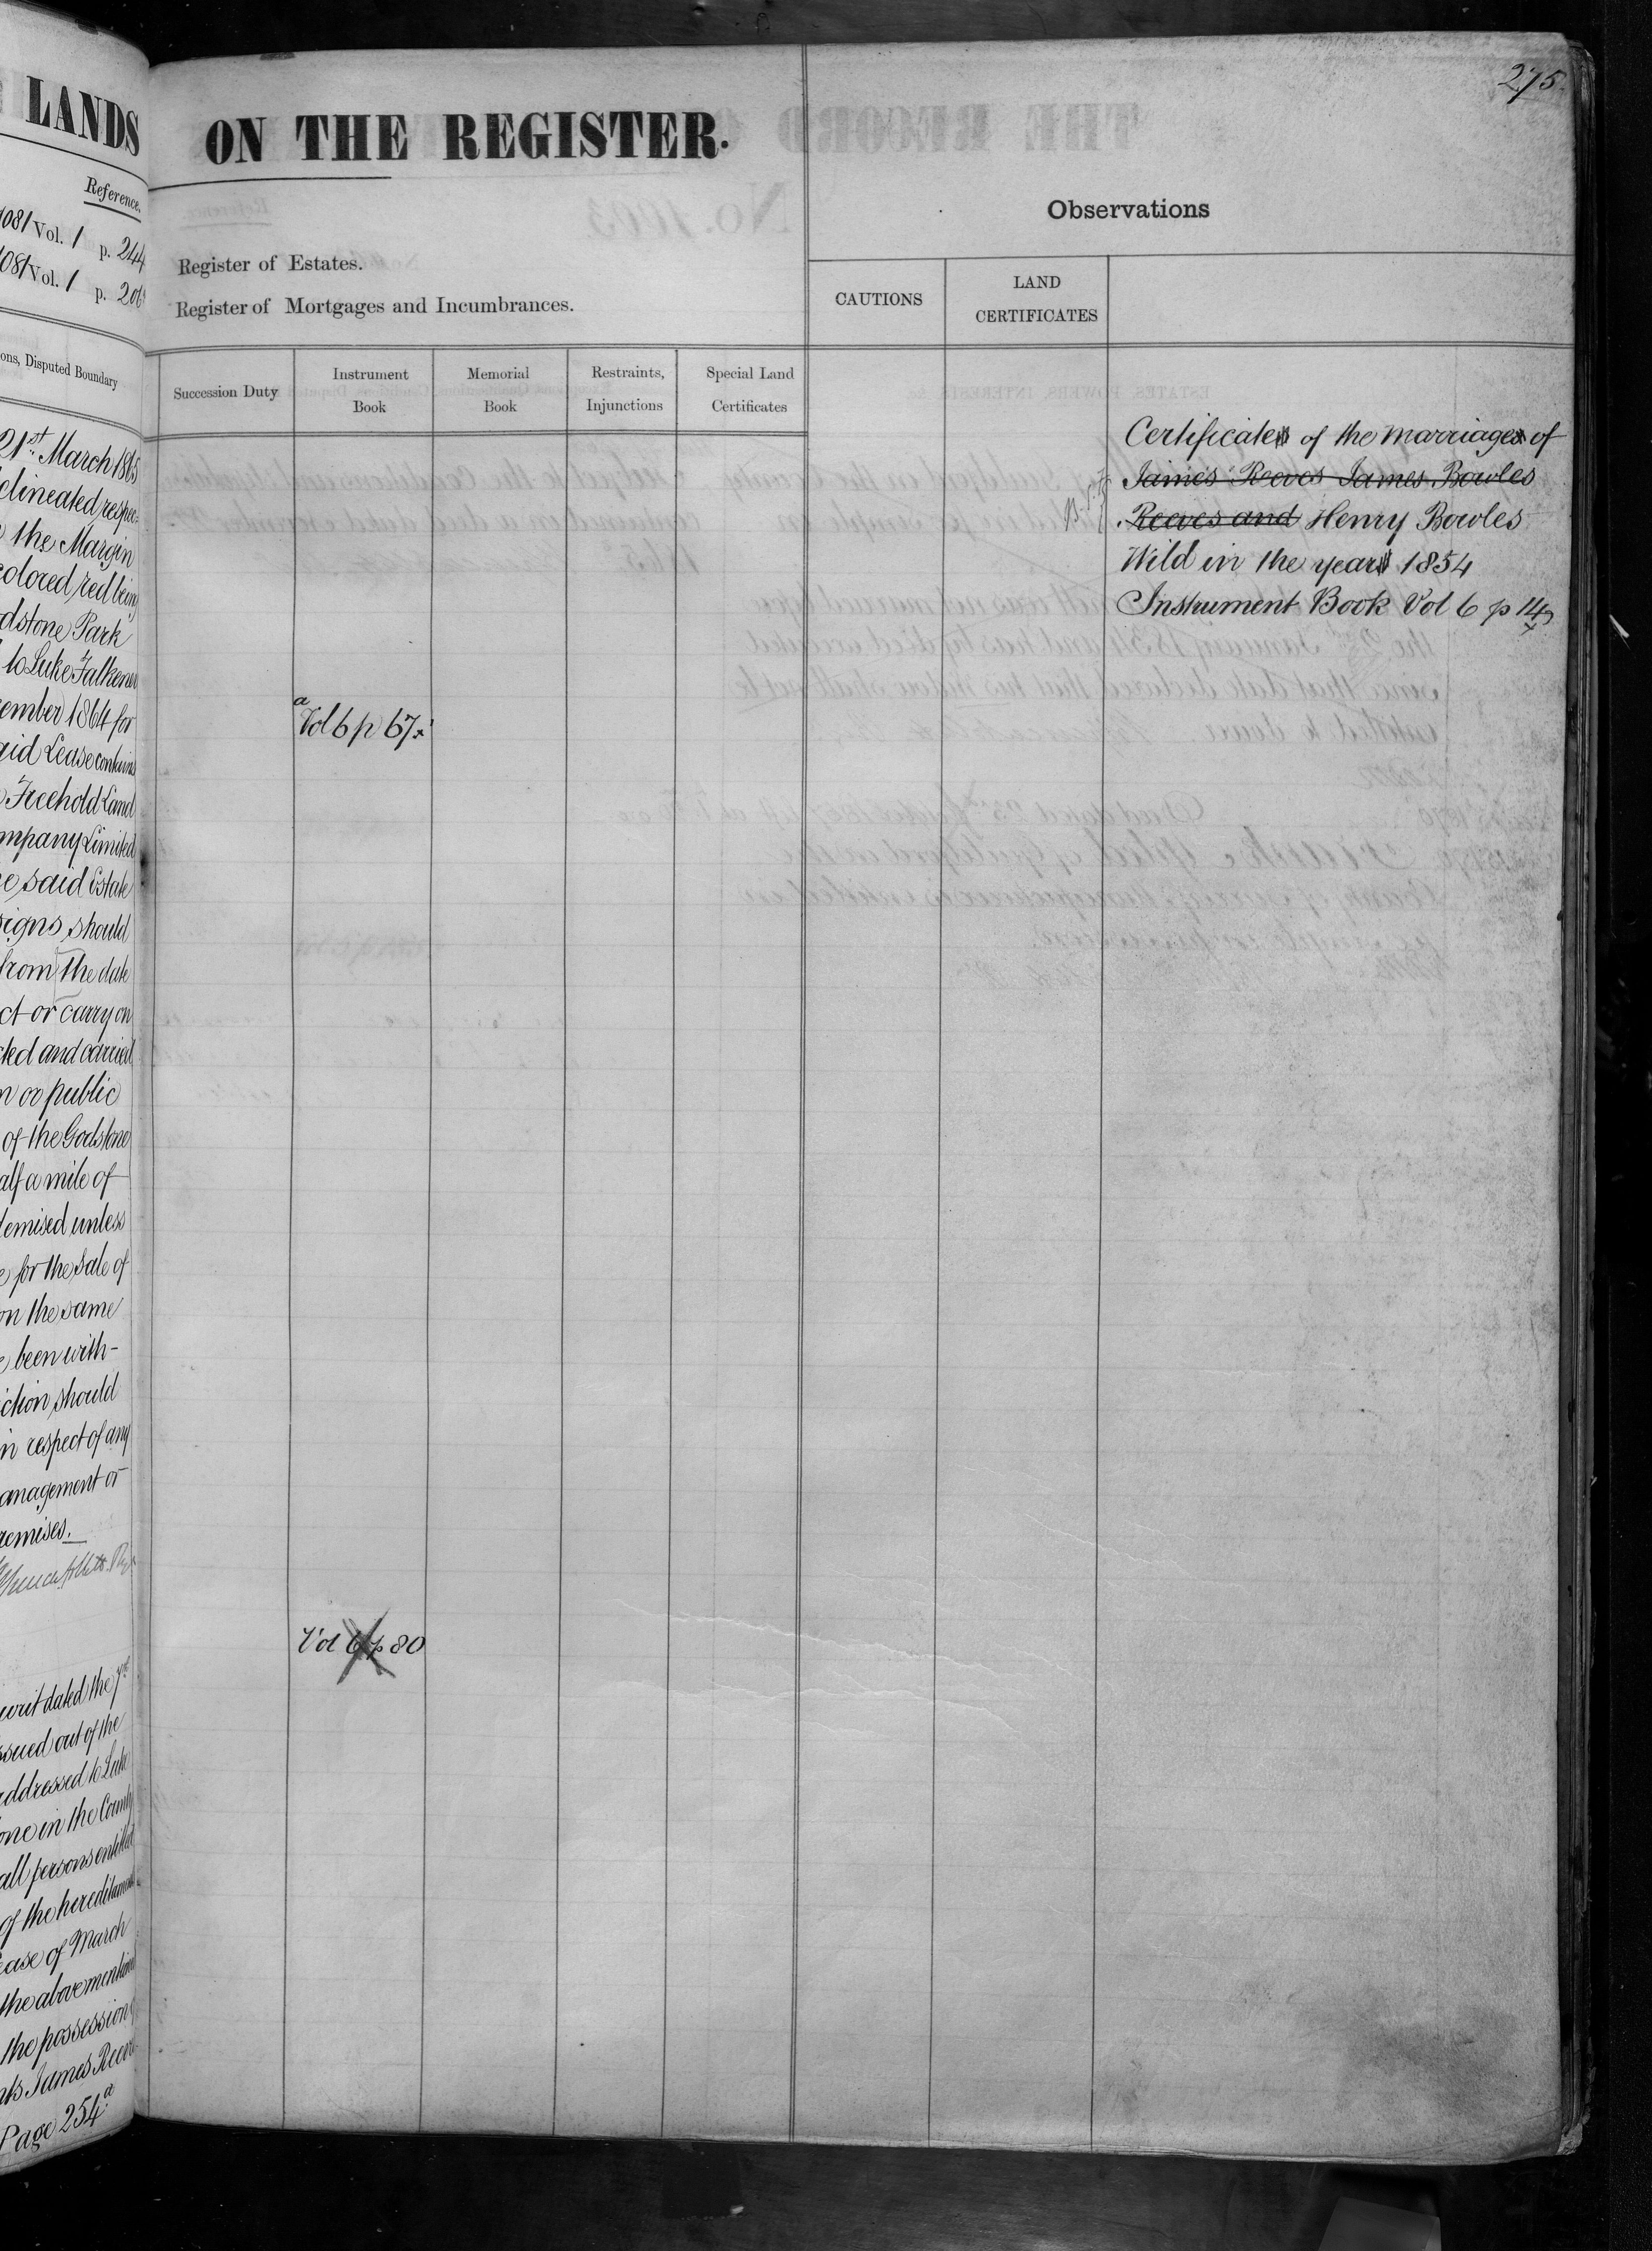 LANDS
Reference.
1081 Vol. 1 p. 244
1081 Vol. 1 p. 206
ons, Disputed Boundary
21st March 1865
delineated respec-
the Margin
colored red being
dstone Park
to Luke Falkener
ember 1864 for
aid Lease contains
Freehold Land
mpany Limited
e said Estate
signs should
from the date
ct or carry on
cted and carried
n or public
of the Godstone
alf a mile of
demised unless
e for the sale of
on the same
e been with-
iction should
in respect of any
anagement or
remises.
writ dated the 7th
ssued out of the
addressed to Luke
one in the County
all persons entitled
of the hereditaments
ease of March
the abovementioned
the possession
James Reeves
Page 254a
275
ON THE REGISTER.
Observations
Register of Estates.
Register of Mortgages and Incumbrances.
CAUTIONS
LAND CERTIFICATES
Succession Duty
Instrument Book
Memorial Book
Restraints, Injunctions
Special Land Certificates
Certificate of the marriage of
James Reeves James Bowles
Reeves and Henry Bowles
Wild in the year 1854
Instrument Book Vol 6 p 14
a
Vol 6 p 67
Vol 6 p 80